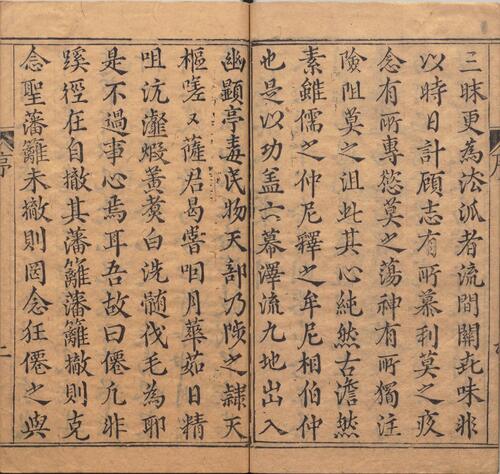 三昧更為法派者流間關噩味非
以時日計顧志有所慕利莫之疚
念有所專慾莫之蕩神有所獨注
險阻莫之沮此其心純然古澹然
素雖儒之仲尼釋之牟尼相伯仲
也是以功盖六幕澤流九地出入
幽顯亭毒民物天部乃陟之隸天
樞嗟又薩君曷嘗咽月華茹日精
咀沆瀣煆黃芽白洗髓伐毛為耶
是不過事心焉耳吾故曰僊凡非
蹊徑在自撤其藩籬藩籬撤則克
念聖藩籬未撤則罔念狂僊之與
序
二